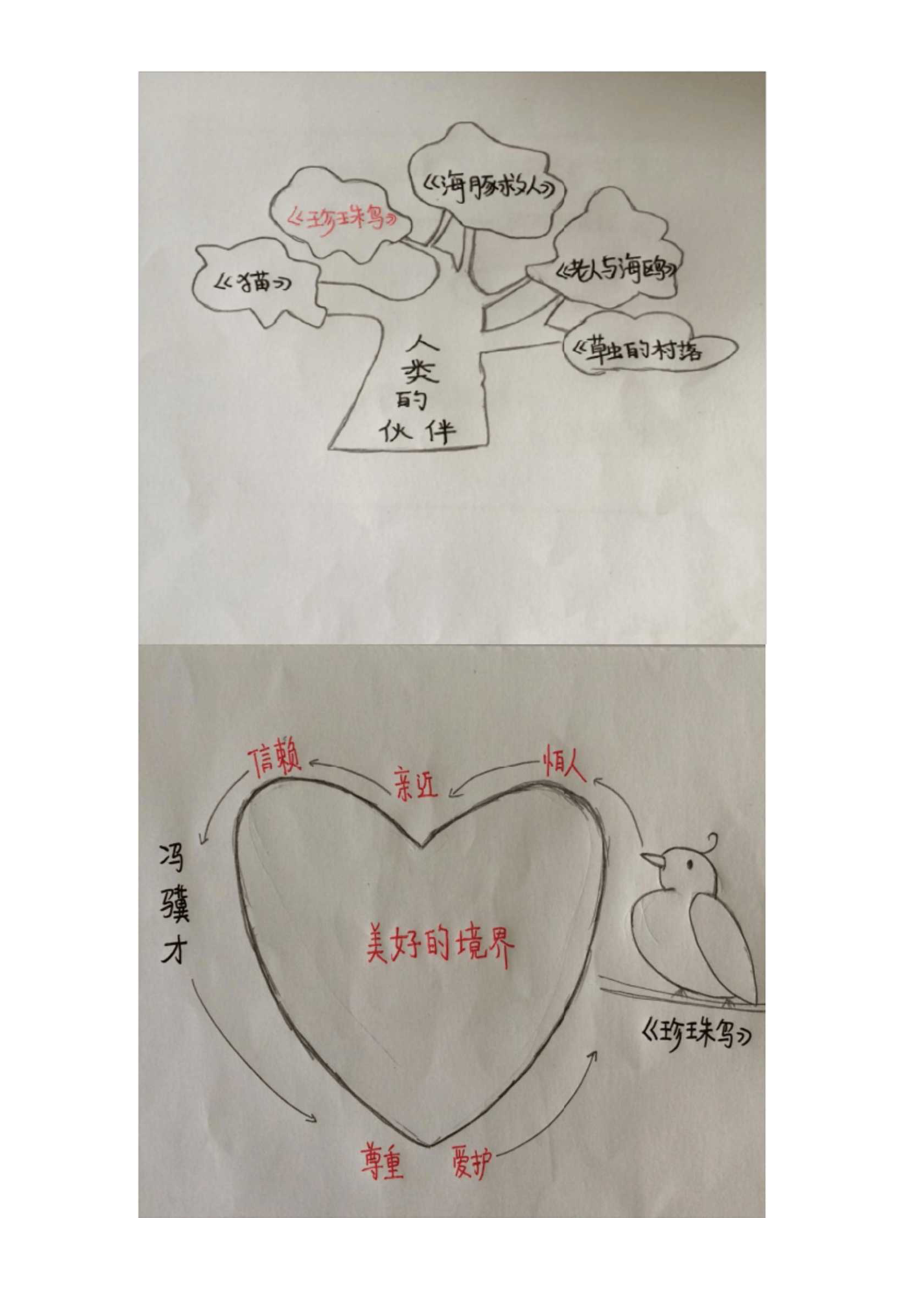 《海豚救人》
《珍珠鸟》
《老人与海鸥》
《猫》
《草虫的村落
人
类
的
伙伴
信赖
亲近
怕人
冯
骥
才
美好的境界
《珍珠鸟》
尊重 爱护